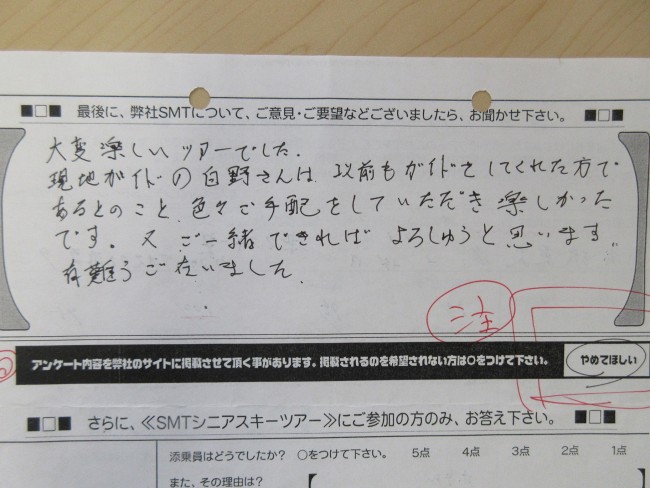 ■□■ 最後に、弊社SMTについて、ご意見・ご要望などございましたら、お聞かせ下さい。 ■□■
大変楽しいツアーでした.
現地ガイドの白野さんは、以前もガイドをしてくれた方で
あるとのこと、色々ご手配をしていただき楽しかった
です。又ご一緒できればよろしゅうと思います。
有難うございました.
注
アンケート内容を弊社のサイトに掲載させて頂く事があります。掲載されるのを希望されない方は○をつけて下さい。 やめてほしい
■□■ さらに、≪SMTシニアスキーツアー≫にご参加の方のみ、お答え下さい。 ■□■
添乗員はどうでしたか? ○をつけて下さい。 5点 4点 3点 2点 1点
また、その理由は?